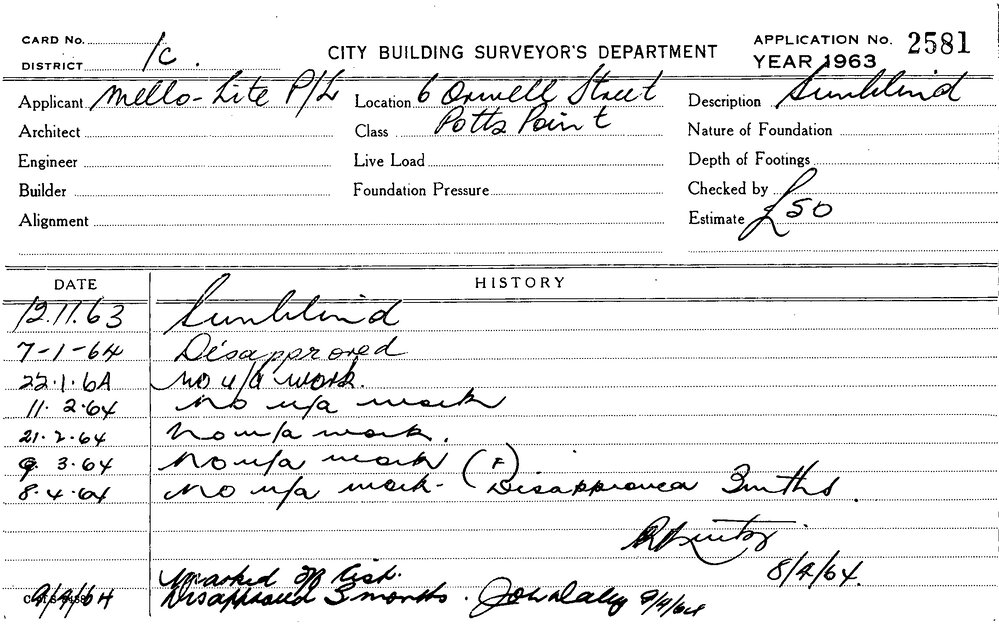 CARD No.
DISTRICT 1c.
CITY BUILDING SURVEYOR'S DEPARTMENT
APPLICATION No. 2581
YEAR 1963
Applicant Mello-Lite P/L
Location 6 Orwell Street
Description Sunblind
Architect
Class Potts Point
Nature of Foundation
Engineer
Live Load
Depth of Footings
Builder
Foundation Pressure
Checked by
Alignment
Estimate £50
DATE HISTORY
12.11.63 Sunblind
7-1-64 Disapproved
22.1.64 No u/a work.
11.2.64 No u/a work
21.2.64 No u/a work.
9.3.64 No u/a work (F)
8.4.64 No u/a work - Disapproved 3 mths.
8/4/64.
Marked off list.
9/4/64 Disapproved 3 months. John Daley 9/4/64